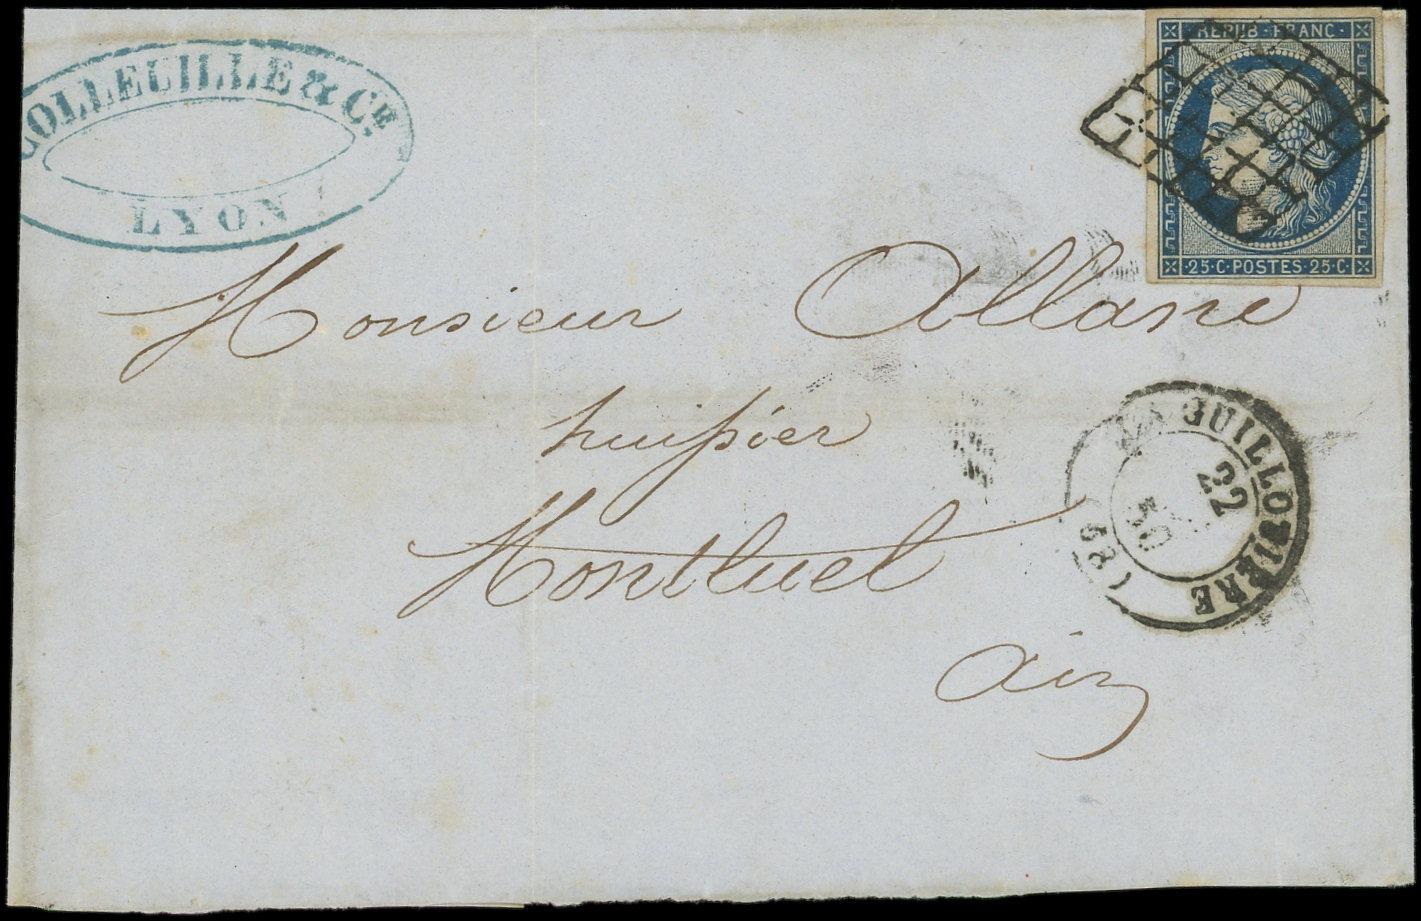 COLLEUILLE & Cie
LYON
REPUB·FRANC·
·25·C·POSTES·25·C·
Monsieur Allane
huissier
Montluel
Ain
LA GUILLOTIÈRE
22
50